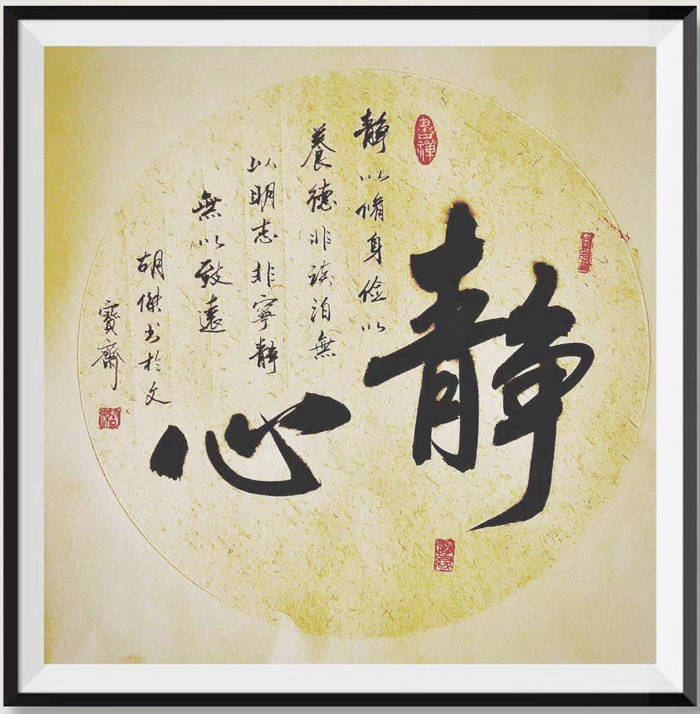 靜心
靜以脩身俭以
養德非淡泊無
以明志非寧靜
無以致遠
胡傑书於文
寶齋
書禪